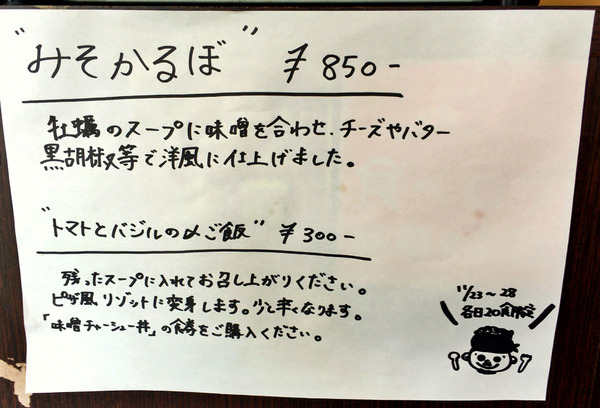 "みそかるぼ" ¥850-
牡蠣のスープに味噌を合わせ、チーズやバター
黒胡椒等で洋風に仕上げました。
"トマトとバジルの〆ご飯" ¥300-
残ったスープに入れてお召し上がりください。
ピザ風リゾットに変身します。少し辛くなります。
「味噌チャーシュー丼」の食券をご購入ください。
11/23〜28
各日20食限定